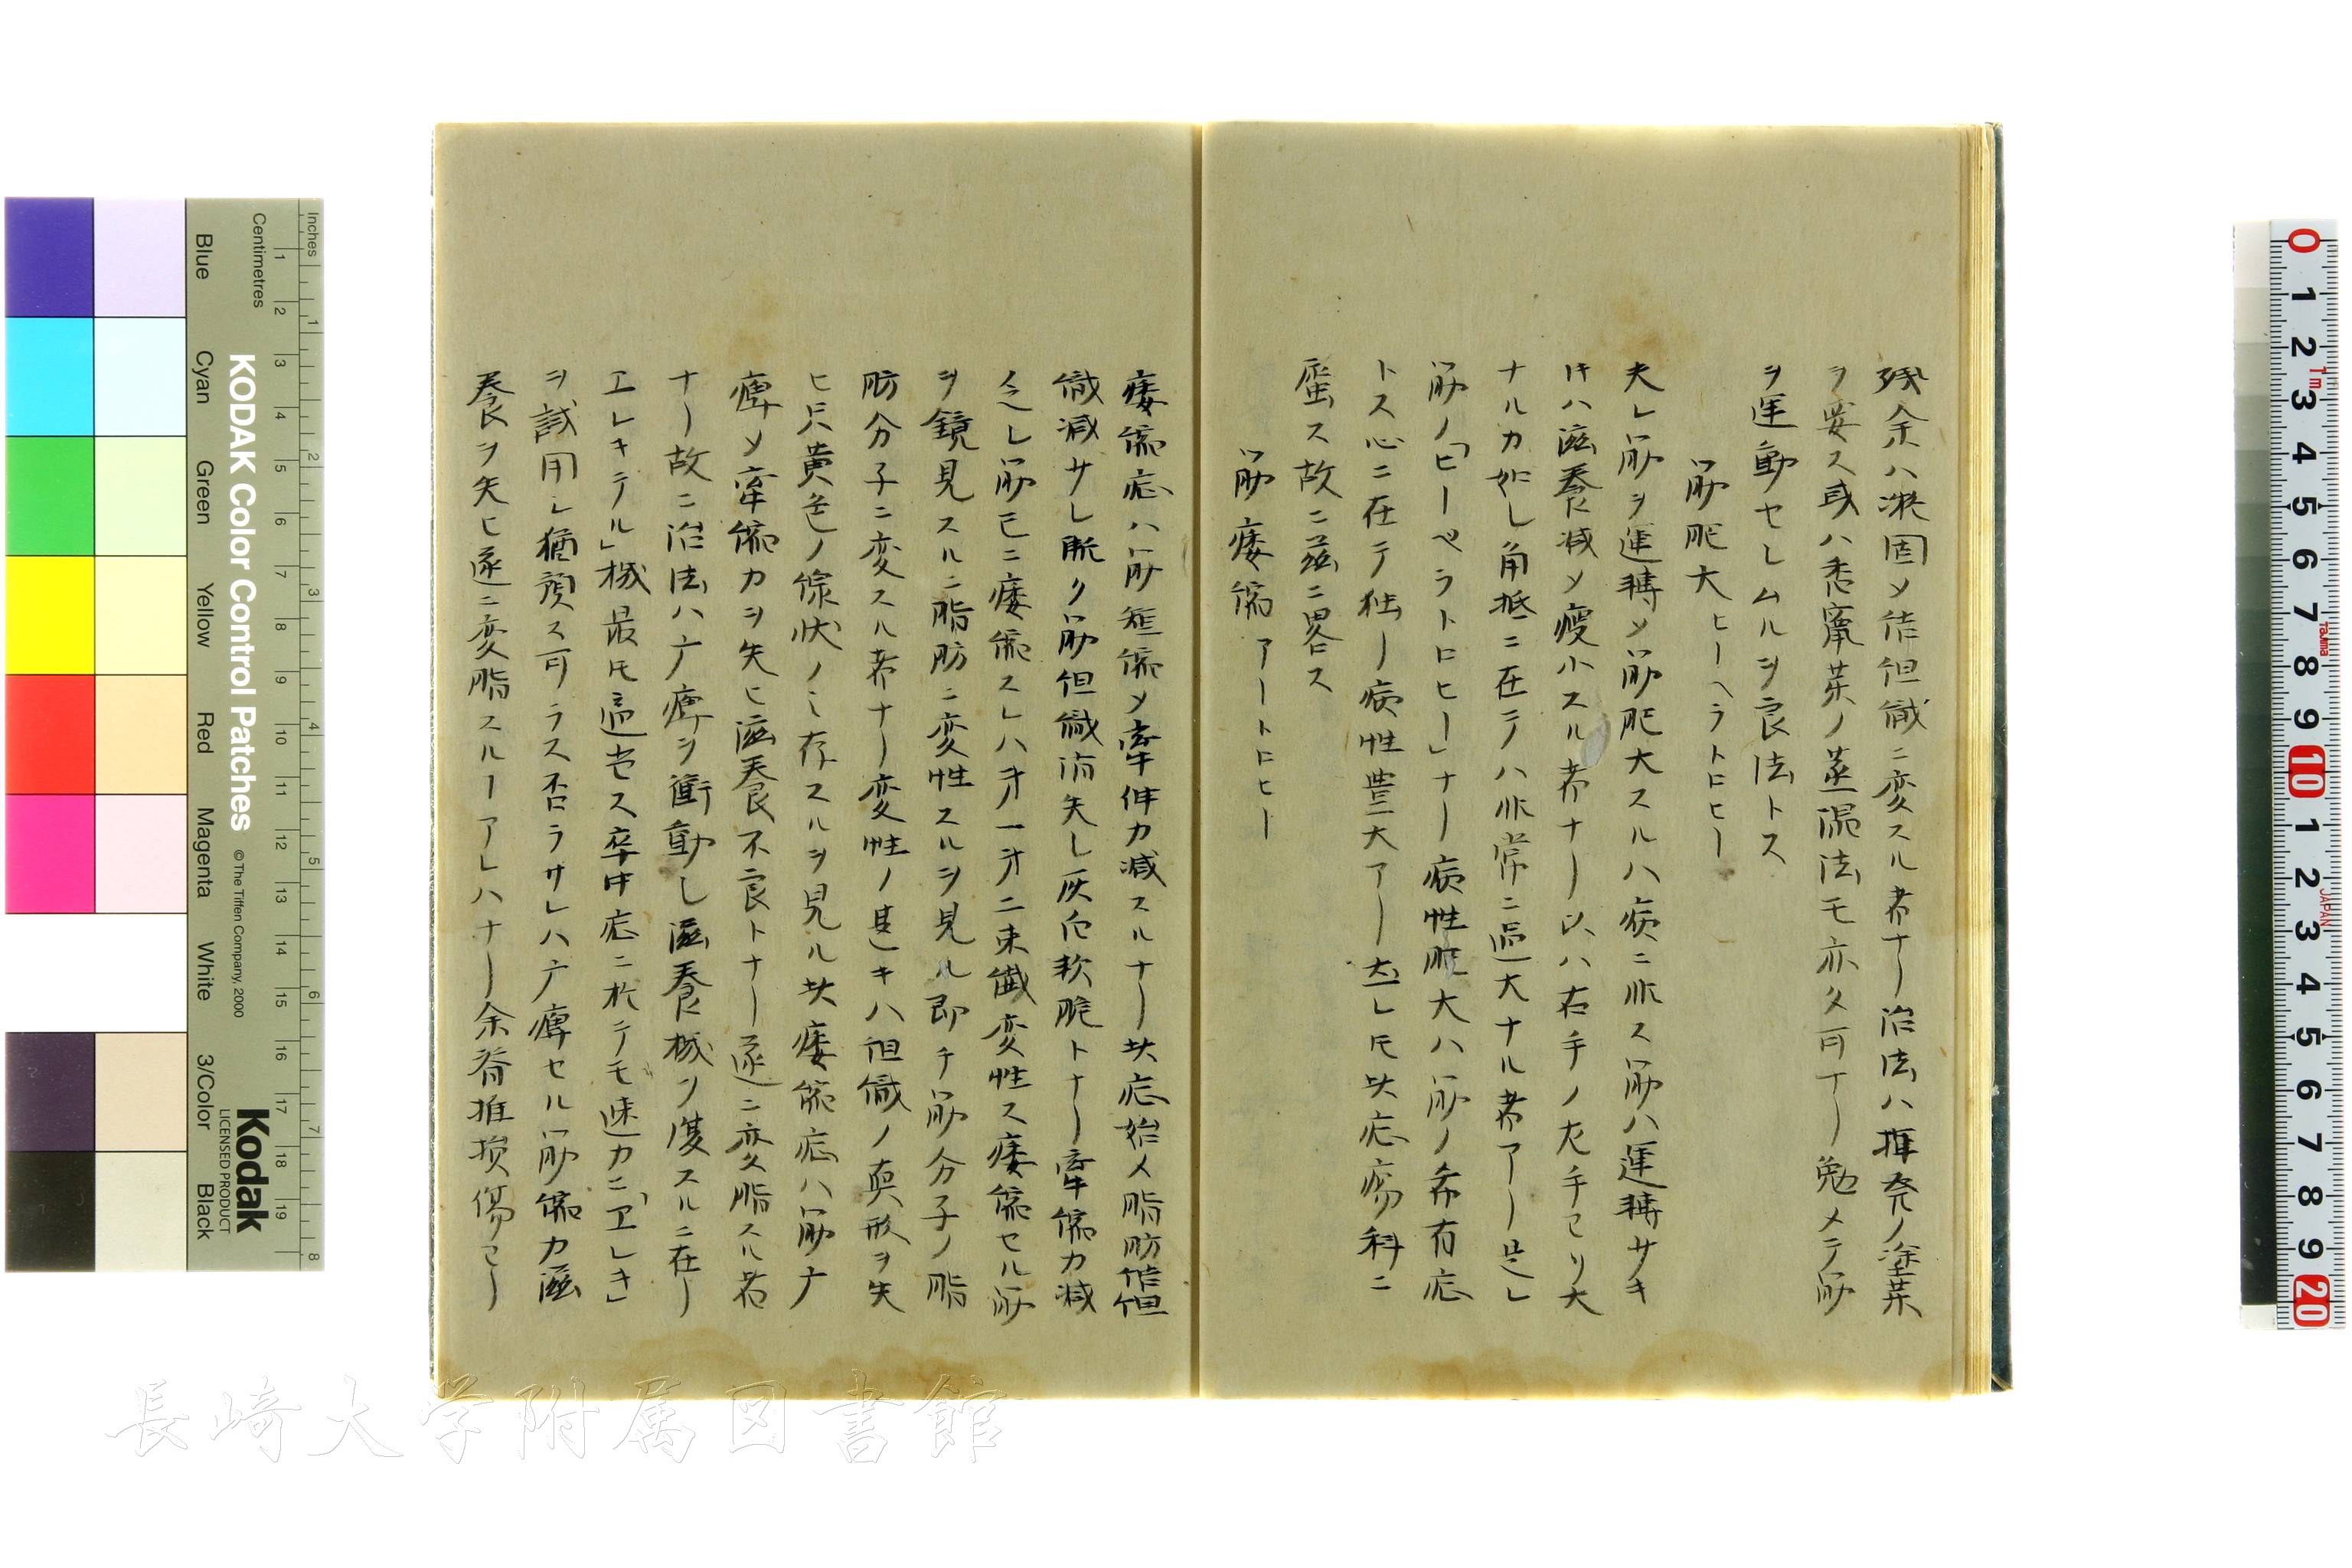 残余ハ凝固〆結伹織ニ変スル者ナ〡治法ハ揮発ノ塗薬
ヲ妄ス或ハ悉竄薬ノ蒸溻法モ亦久可丁〡勉メテ筋
ヲ運動セシムルヲ良法トス
筋肥大ヒーヘラトロヒー
夫レ筋ヲ運轉〆筋肥大スルハ病ニ非ス筋ハ運轉サキ
片ハ滋養减〆瘦小スル者ナ〡以ハ右手ノ左手ヨリ大
ナルカ如し角抵ニ在テハ非常ニ過大ナル者ア〡是レ
筋ノ「ヒーペラトロヒー」ナ〡病性肥大ハ筋ノ希有症
トス心ニ在テ独〡病性豊大ア〡然レ𪜈其症瘍科ニ
属ス故ニ茲ニ畧ス
筋痿縮アートロヒー
痿縮症ハ筋短縮〆牽伸力减スルナ〡其症始メ脂肪結伹
織减サレ脱ク筋伹織消失し灰白軟脆トナ〡牽縮力减
ス之レ筋已ニ痿縮スレハ才一才二束織変性ス痿縮セル筋
ヲ鏡見スルニ脂肪ニ変性スルヲ見ル即チ筋分子ノ脂
肪分子ニ変スル者ナ〡変性ノ甚キハ伹織ノ真形ヲ失
ヒ只黄色ノ線状ノミ存スルヲ見ル其痿縮症ハ筋广
痺〆牽縮力ヲ失ヒ滋養不良トナ〡遂ニ変脂スル者
ナ〡故ニ治法ハ广痺ヲ衝動し滋養機ヲ復スルニ在〡
エレキテル」機最𪜈適当ス卒中症ニ於テモ速カニ「エレキ」
ヲ試用レ猶預ス可ラス否ラサレハ广痺セル筋縮力滋
養ヲ失ヒ遂ニ変脂スル〡アレハナ〡余脊推损傷ヨ〡
KODAK Color Control Patches
© The Tiffen Company, 2000
Kodak
LICENSED PRODUCT
Inches
Centimetres
Blue Cyan Green Yellow Red Magenta White 3/Color Black
長崎大学附属図書館